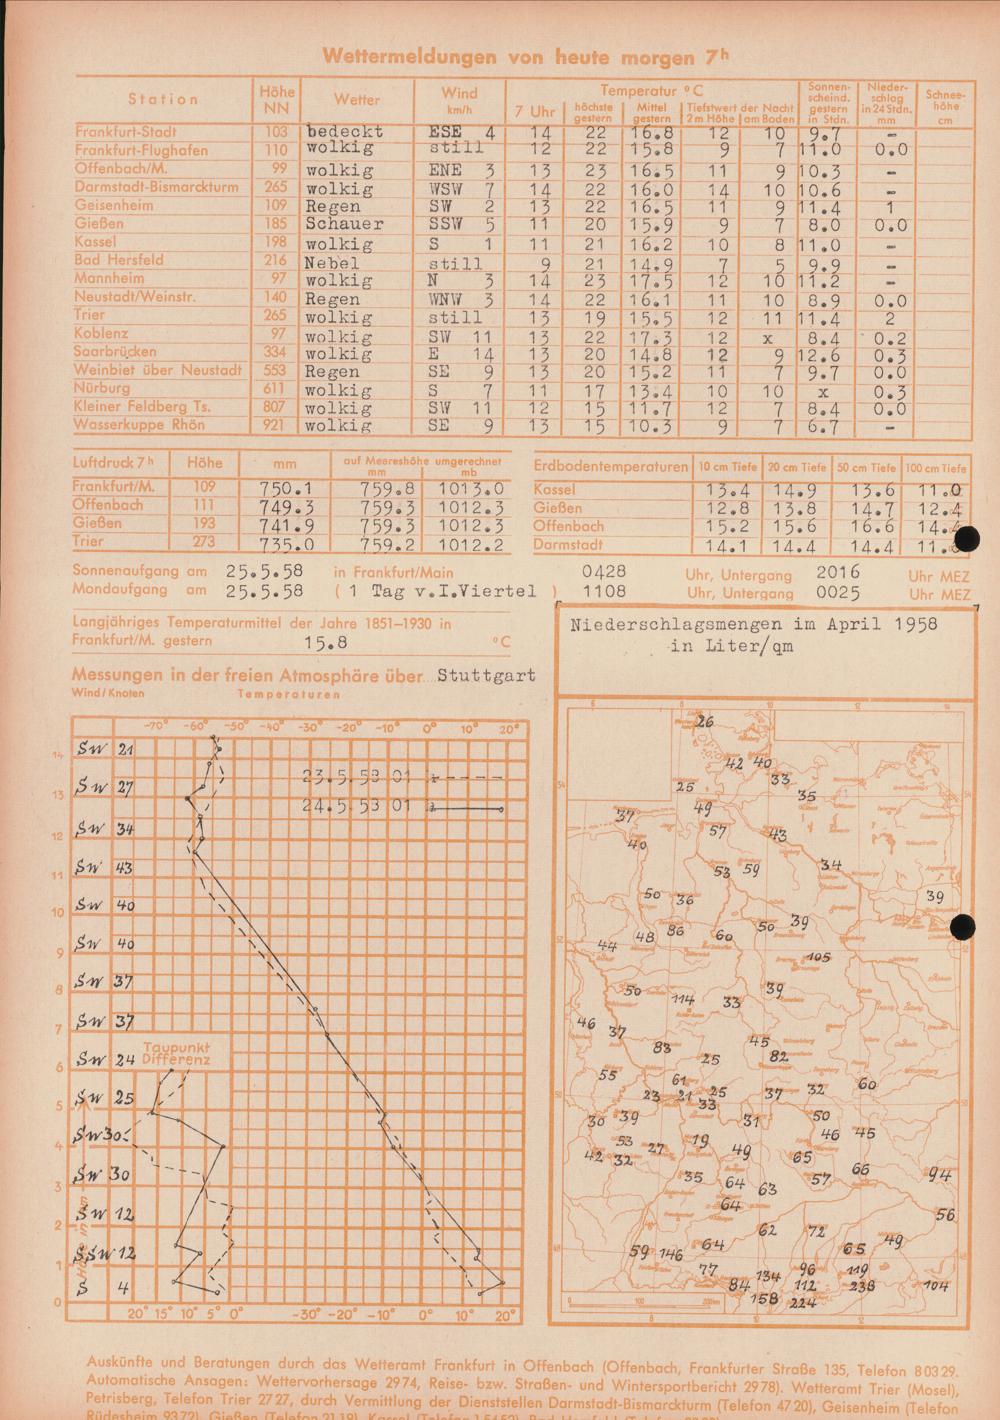 Wettermeldungen von heute morgen 7h
Station Höhe NN Wetter Wind km/h Temperatur °C Sonnenscheind. gestern in Stdn. Niederschlag in 24 Stdn. mm Schneehöhe cm
7 Uhr höchste gestern Mittel gestern Tiefstwert der Nacht 2m Höhe am Boden
Frankfurt-Stadt 103 bedeckt ESE 4 14 22 16.8 12 10 9.7 -
Frankfurt-Flughafen 110 wolkig still 12 22 15.8 9 7 11.0 0.0
Offenbach/M. 99 wolkig ENE 3 13 23 16.5 11 9 10.3 -
Darmstadt-Bismarckturm 265 wolkig WSW 7 14 22 16.0 14 10 10.6 -
Geisenheim 109 Regen SW 2 13 22 16.5 11 9 11.4 1
Gießen 185 Schauer SSW 5 11 20 15.9 9 7 8.0 0.0
Kassel 198 wolkig S 1 11 21 16.2 10 8 11.0 -
Bad Hersfeld 216 Nebel still 9 21 14.9 7 5 9.9 -
Mannheim 97 wolkig N 3 14 23 17.5 12 10 11.2 -
Neustadt/Weinstr. 140 Regen WNW 3 14 22 16.1 11 10 8.9 0.0
Trier 265 wolkig still 13 19 15.5 12 11 11.4 2
Koblenz 97 wolkig SW 11 13 22 17.3 12 x 8.4 0.2
Saarbrücken 334 wolkig E 14 13 20 14.8 12 9 12.6 0.3
Weinbiet über Neustadt 553 Regen SE 9 13 20 15.2 11 7 9.7 0.0
Nürburg 611 wolkig S 7 11 17 13.4 10 10 x 0.3
Kleiner Feldberg Ts. 807 wolkig SW 11 12 15 11.7 12 7 8.4 0.0
Wasserkuppe Rhön 921 wolkig SE 9 13 15 10.3 9 7 6.7 -
Luftdruck 7h Höhe mm auf Meereshöhe umgerechnet mm mb
Frankfurt/M. 109 750.1 759.8 1013.0
Offenbach 111 749.3 759.3 1012.3
Gießen 193 741.9 759.3 1012.3
Trier 273 735.0 759.2 1012.2
Erdbodentemperaturen 10 cm Tiefe 20 cm Tiefe 50 cm Tiefe 100 cm Tiefe
Kassel 13.4 14.9 13.6 11.0
Gießen 12.8 13.8 14.7 12.4
Offenbach 15.2 15.6 16.6 14.4
Darmstadt 14.1 14.4 14.4 11.
Sonnenaufgang am 25.5.58 in Frankfurt/Main 0428 Uhr, Untergang 2016 Uhr MEZ
Mondaufgang am 25.5.58 ( 1 Tag v.I.Viertel ) 1108 Uhr, Untergang 0025 Uhr MEZ
Langjähriges Temperaturmittel der Jahre 1851–1930 in
Frankfurt/M. gestern 15.8 °C
Messungen in der freien Atmosphäre über Stuttgart
Wind/Knoten Temperaturen
-70° -60° -50° -40° -30° -20° -10° 0° 10° 20°
14 SW 21
23.5.58 01
13 SW 27
24.5.58 01
12 SW 34
11 SW 43
10 SW 40
9 SW 40
8 SW 37
7 SW 37
Taupunkt
Differenz
6 SW 24
5 SW 25
4 SW 30
3 SW 30
2 SW 12
1 SSW 12
0 S 4
20° 15° 10° 5° 0° -30° -20° -10° 0° 10° 20°
Niederschlagsmengen im April 1958
in Liter/qm
26
42 40
33
25 35
49
37
57 43
40
34
53 59
50 36 39
39
50
86 60
48
44
105
50 39
114 33
46
37
45
83
25 82
55 61 60
23 21 25 37 32
33
30 39 31 50
46 45
53 19
27 49
42 32 65
66
35 57 94
64 63
64
56
62 72
49
59 146 64 65
77 134 96 119
84 112 238 104
158 224
Auskünfte und Beratungen durch das Wetteramt Frankfurt in Offenbach (Offenbach, Frankfurter Straße 135, Telefon 80329.
Automatische Ansagen: Wettervorhersage 2974, Reise- bzw. Straßen- und Wintersportbericht 2978). Wetteramt Trier (Mosel),
Petrisberg, Telefon Trier 2727, durch Vermittlung der Dienststellen Darmstadt-Bismarckturm (Telefon 4720), Geisenheim (Telefon
Rüdesheim 9372), Gießen (Telefon 2119), Kassel